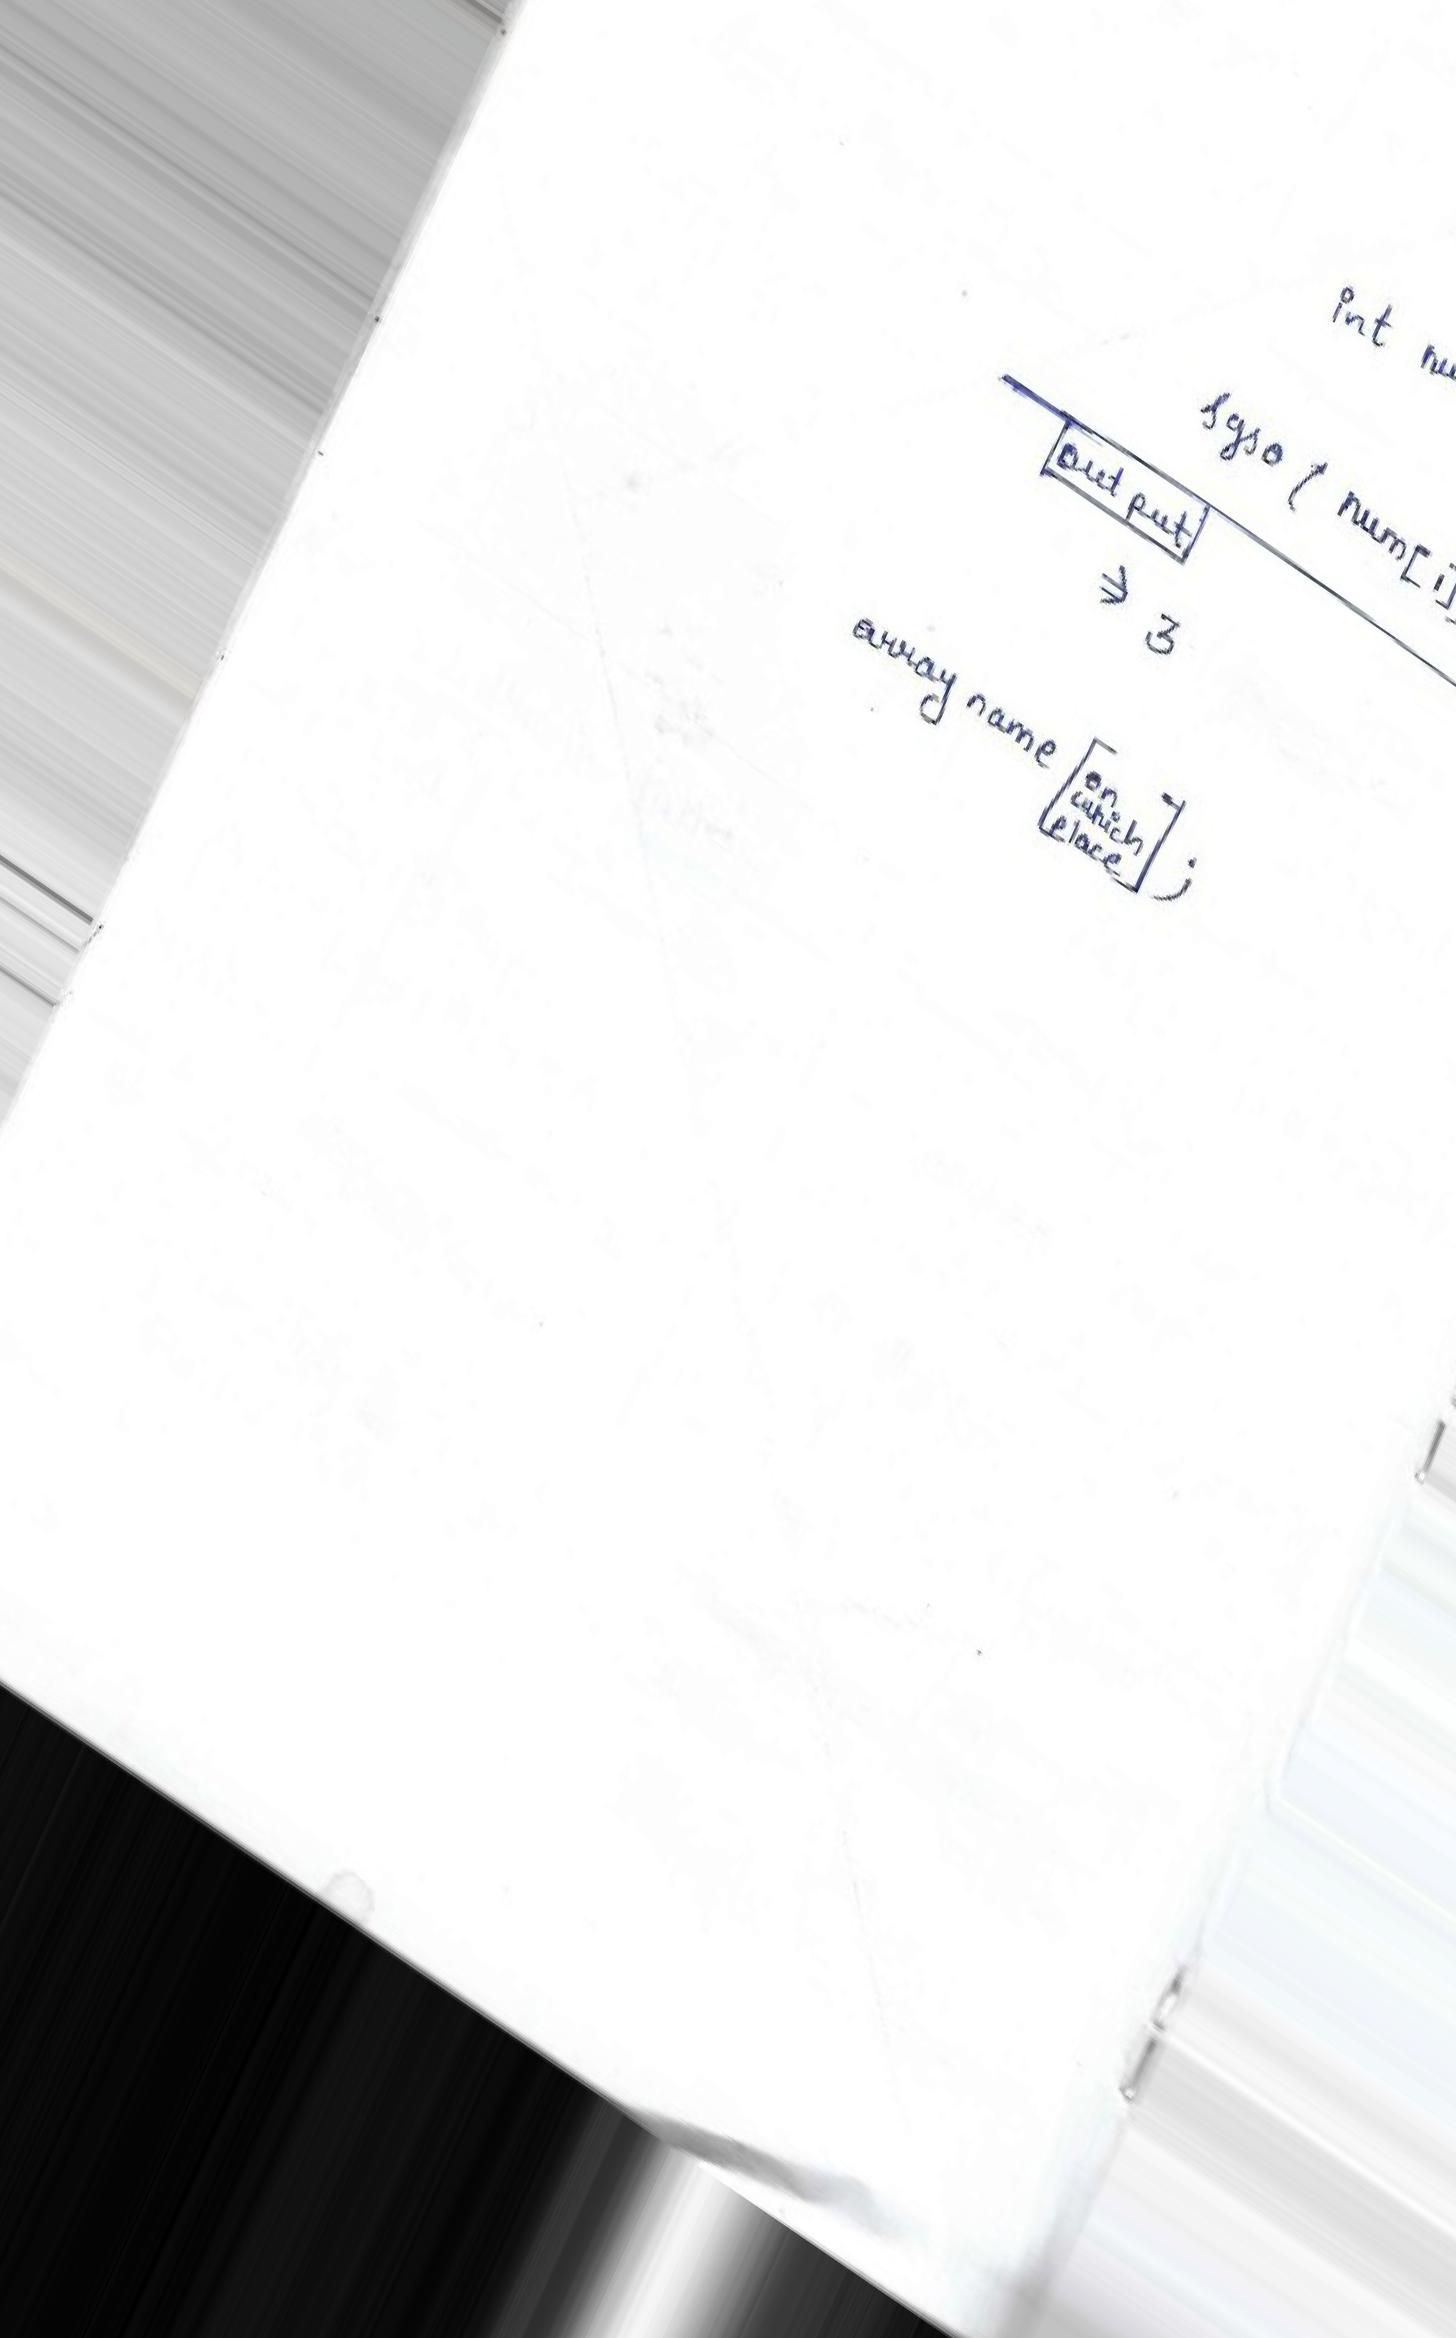 int nu
syso ( num[i]
output
⇒ 3
array name [on which place];